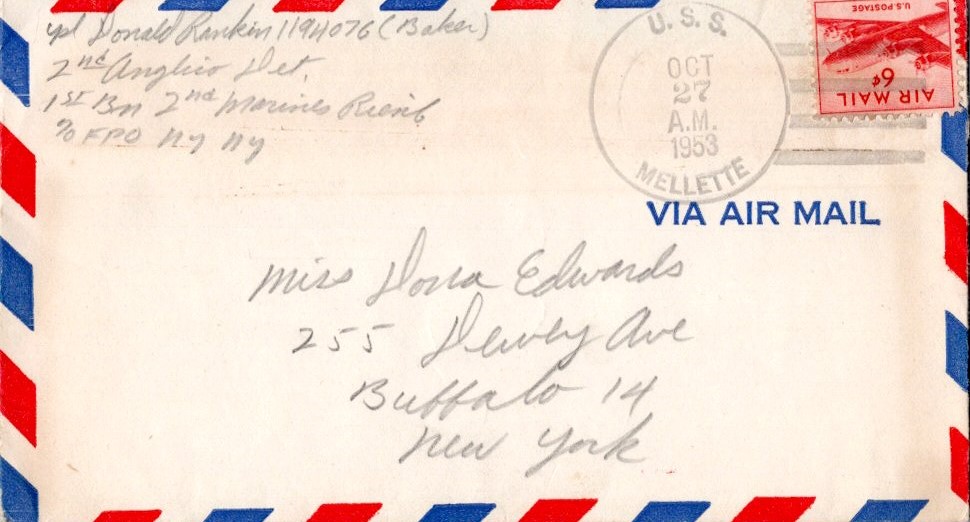 Cpl Donald Rankin 1194076 (Baker)
2nd Anglico Det.
1st Bn 2nd Marines Reinf
% FPO Ny Ny
U.S.S.
OCT
27
A.M.
1953
MELLETTE
U.S. POSTAGE
6¢
AIR MAIL
VIA AIR MAIL
Miss Dona Edwards
255 Dewey Ave
Buffalo 14
New York